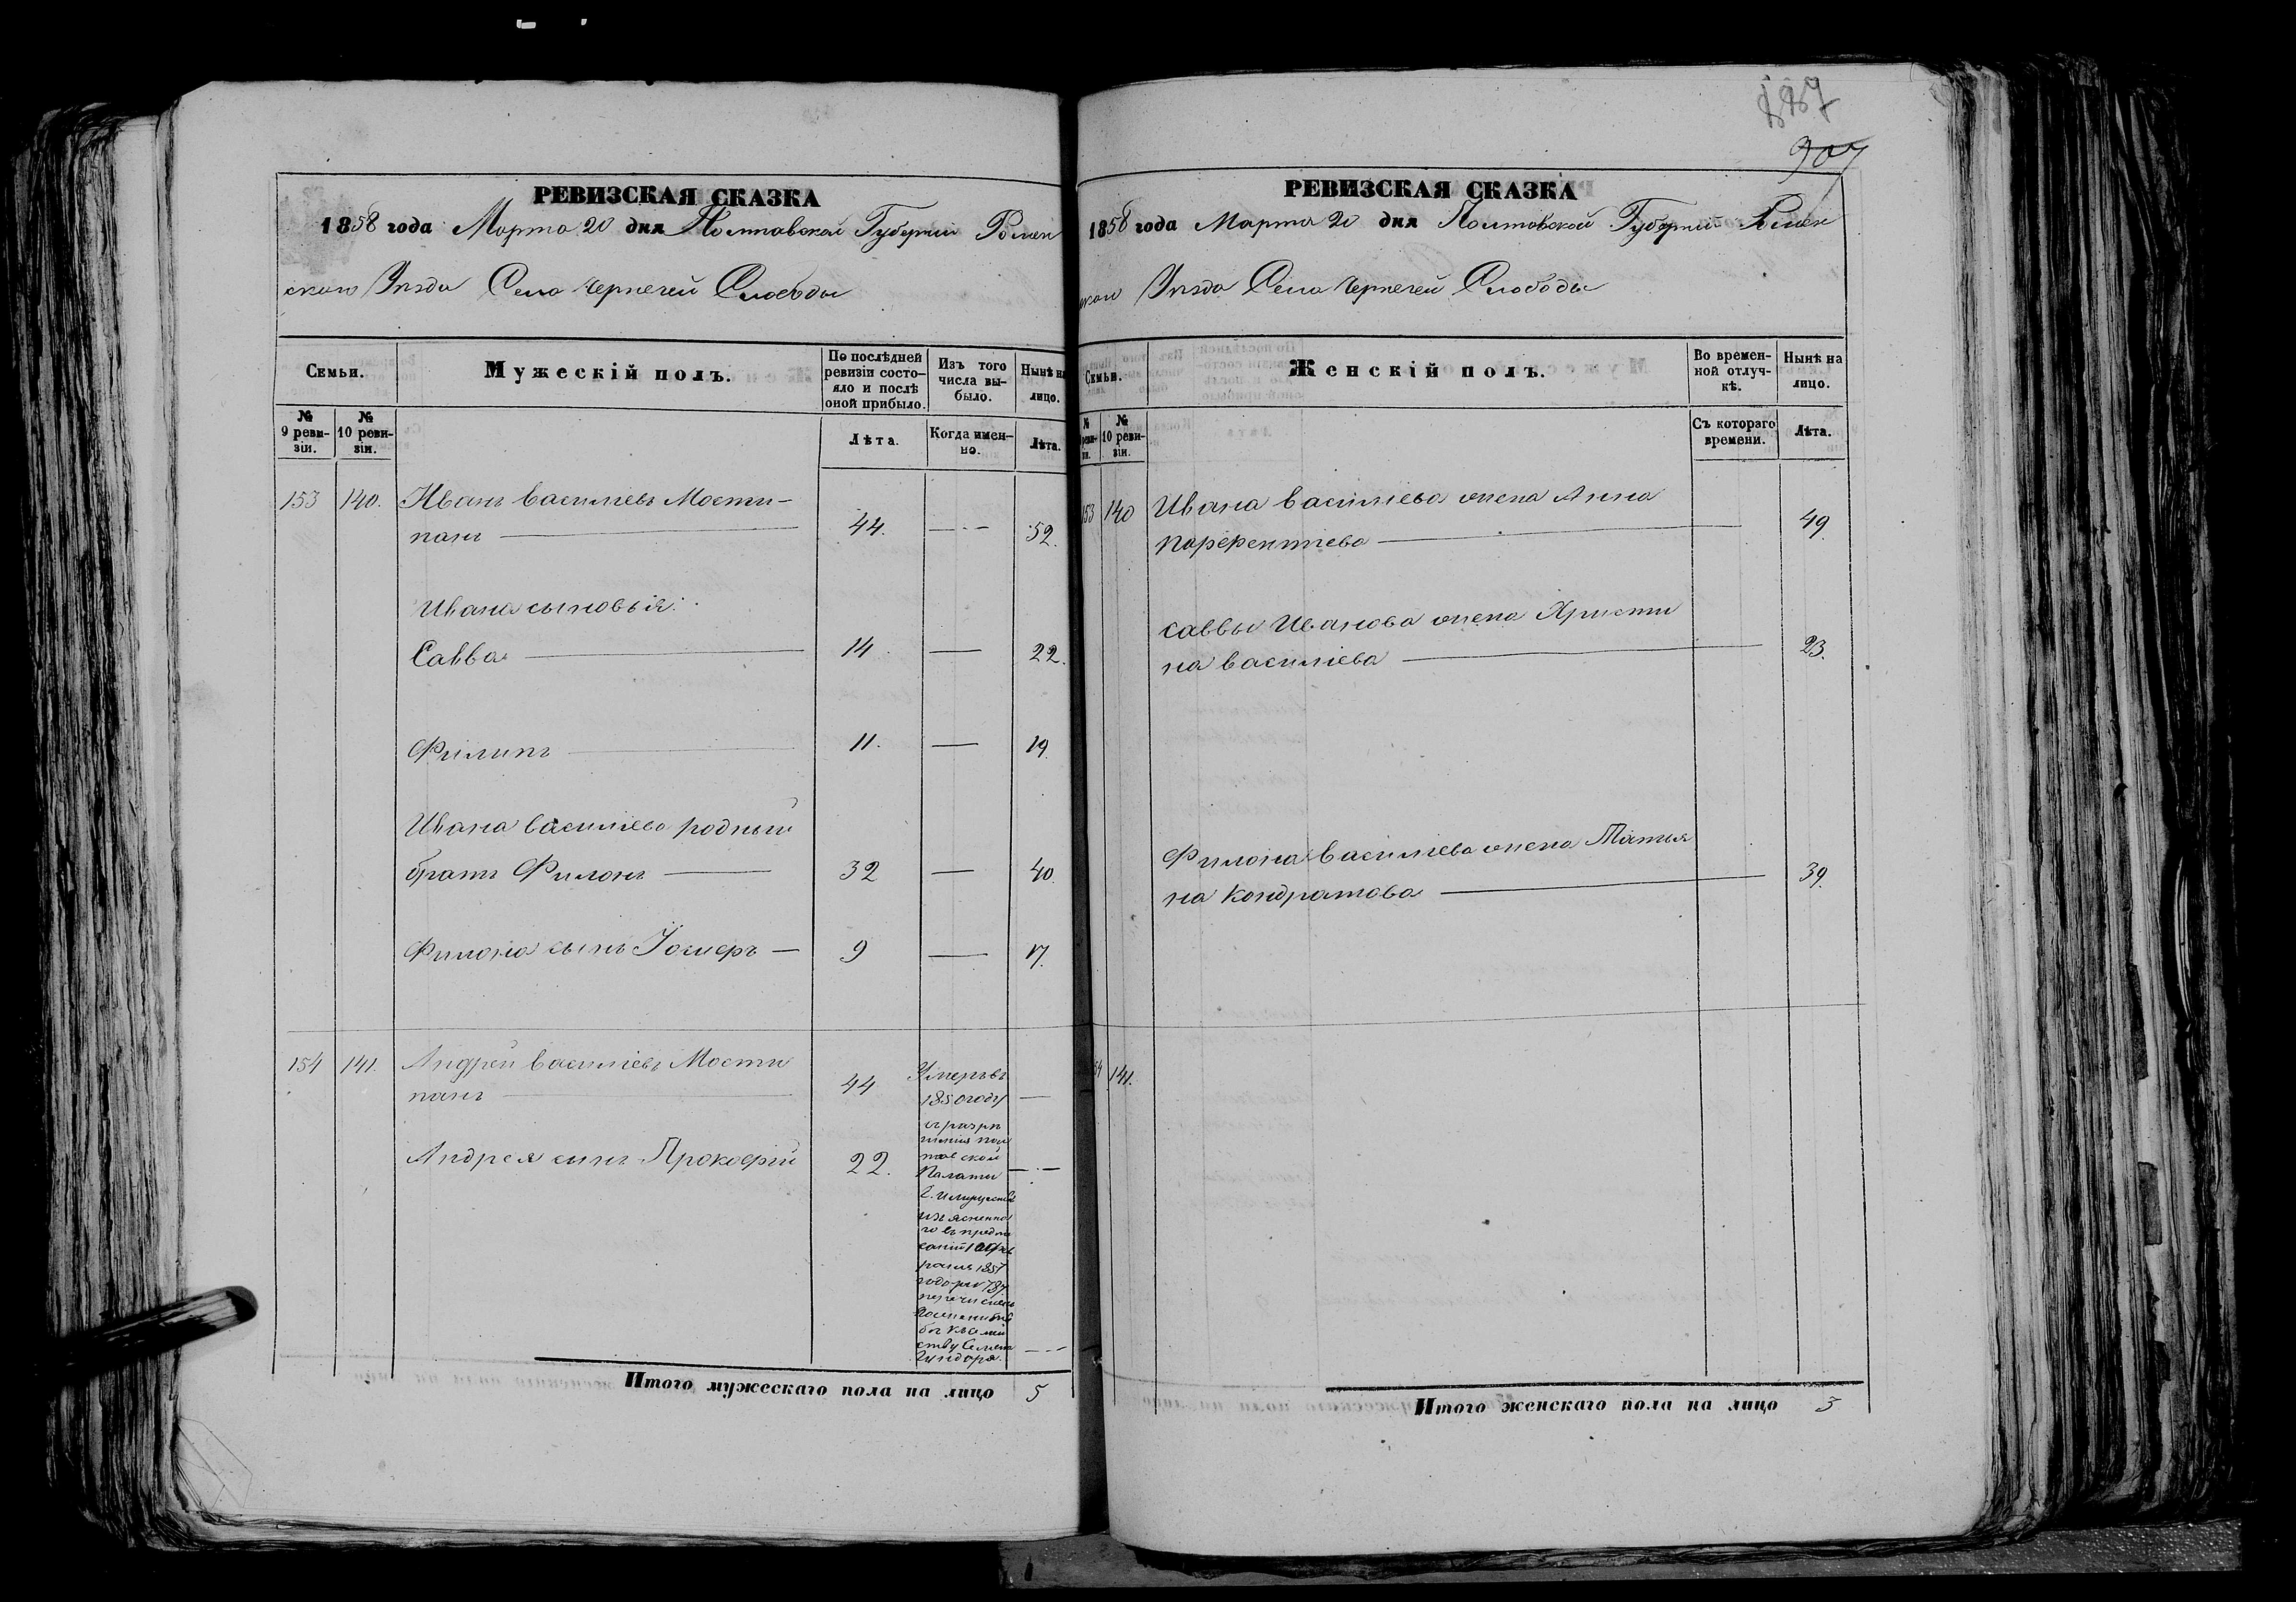 887
907
РЕВИЗСКАЯ СКАЗКА
1858 года Марта 20 дня Полтавской Губернии Ромен
скаго Уѣзда Села Чернечей Слободы
Семьи.
Мужескій полъ.
По послѣдней ревизіи состояло и послѣ оной прибыло.
Изъ того числа выбыло.
Нынѣ на лицо.
№ 9 ревизіи.
№ 10 ревизіи.
Лѣта.
Когда именно.
Лѣта.
153 140. Иванъ Васильевъ Мости-
панъ 44. — 52.
Ивана сыновья:
Савва 14. — 22.
Филипъ 11. — 19
Ивана Васильева родный
братъ Филонъ 32 — 40.
Филона сынъ Іосифъ — 9 — 17.
154 141. Андрей Васильевъ Мости
панъ 44 —
Умеръ въ
1850 году
Андрея сынъ Прокофій 22. —
съ разрѣ
шенія Пол
тавской
Палаты
Г. Имуществ
изъясненна
го въ предпи
саніи
1857
года
перечисленъ
къ семей
ству Семена
Итого мужескаго пола на лицо 5
РЕВИЗСКАЯ СКАЗКА
1858 года Марта 20 дня Полтавской Губерніи Ромен
скаго Уѣзда Села Чернечей Слободы
Семьи.
Женскій полъ.
Во временной отлучкѣ.
Нынѣ на лицо.
№ 9 ревизіи.
№ 10 ревизіи.
Съ котораго времени.
Лѣта.
153 140 Ивана Васильева жена Анна
Парфентіева 49
Саввы Иванова жена Христи
на Васильева 23.
Филона Васильева жена Татья
на Кондратова 39.
154 141.
Итого женскаго пола на лицо 3